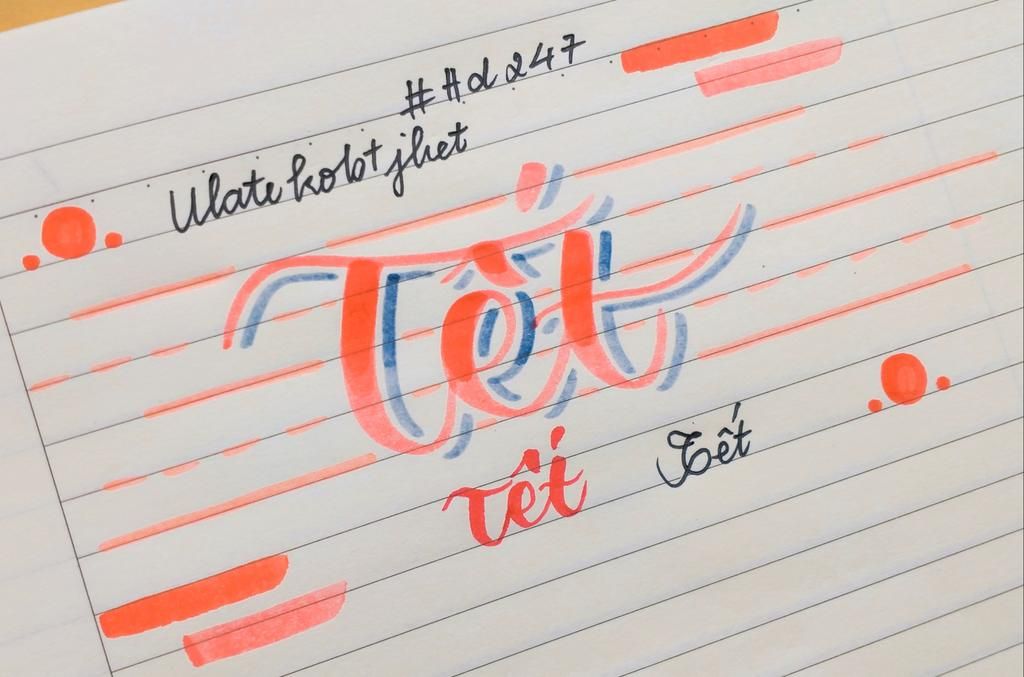 ##d247
Ulatekobtjhet
Tết
Tết
Tết